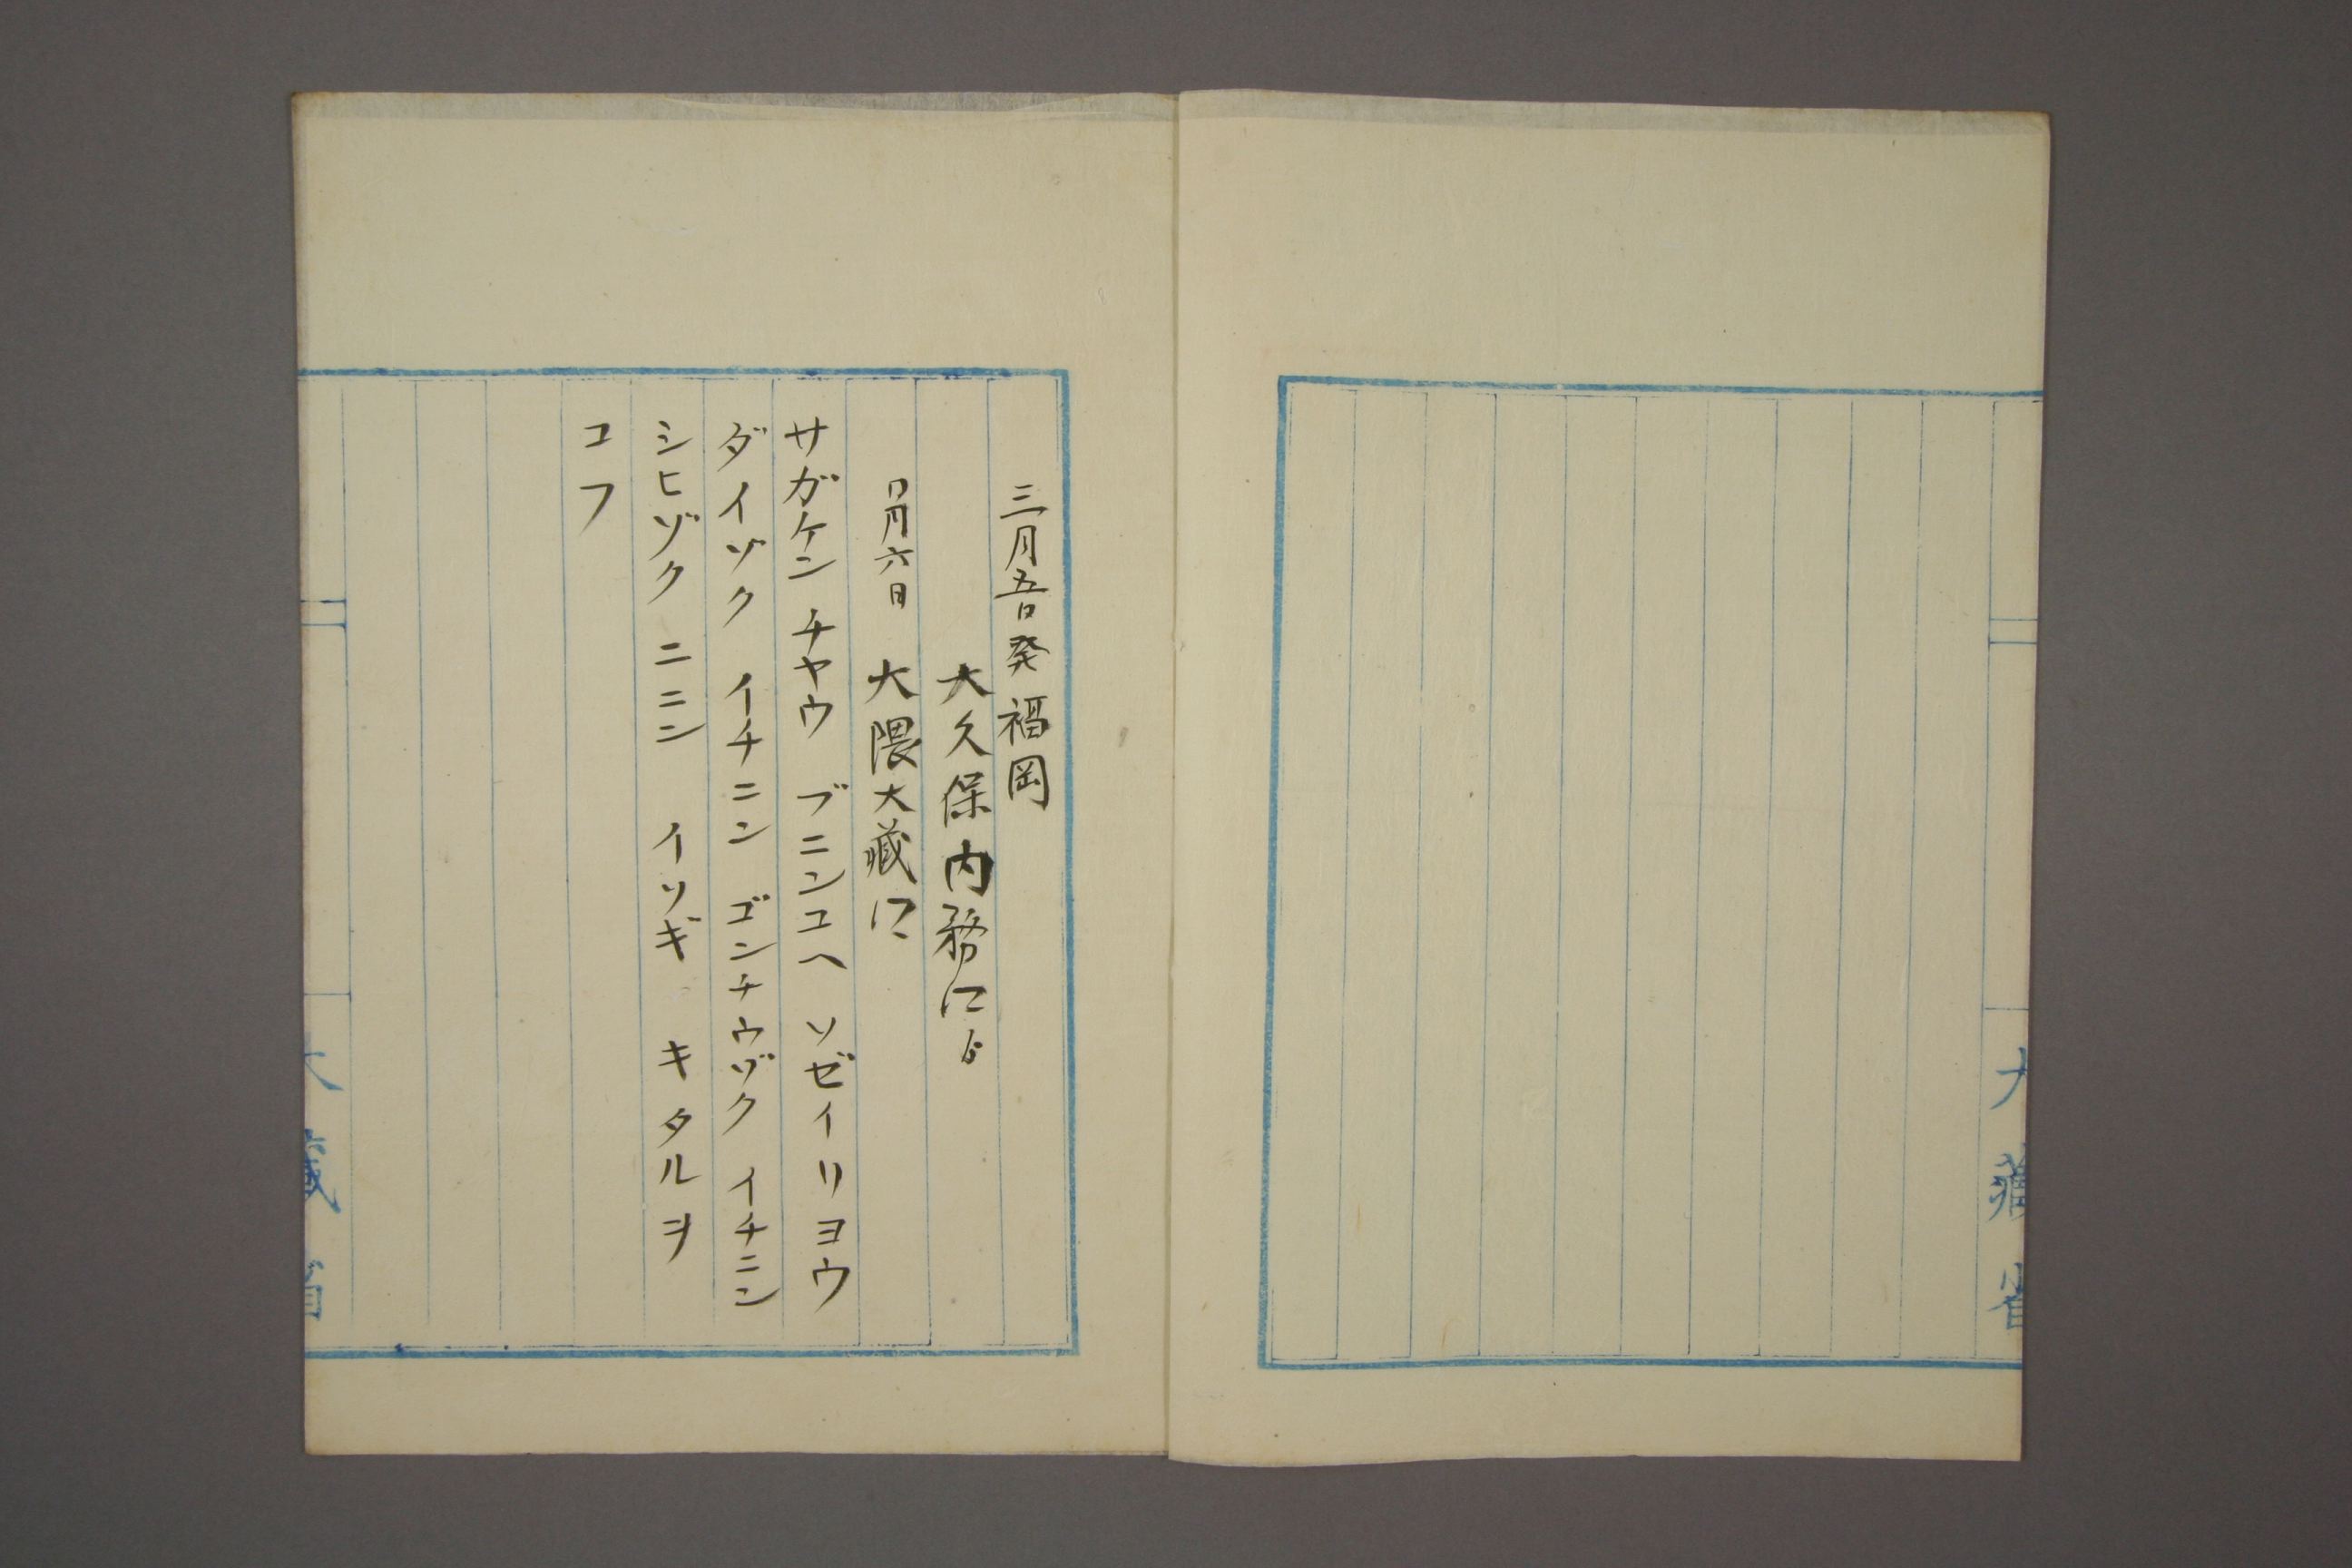 大藏省
三月五日発福岡
大久保内務卿ゟ
仝月六日 大隈大藏卿
サガケン チヤウ ブニンユヘ ソゼイリヨウ
ダイゾク イチニン ゴンチウゾク イチニン
シヒゾク ニニン イソギ キタルヲ
コフ
大藏省